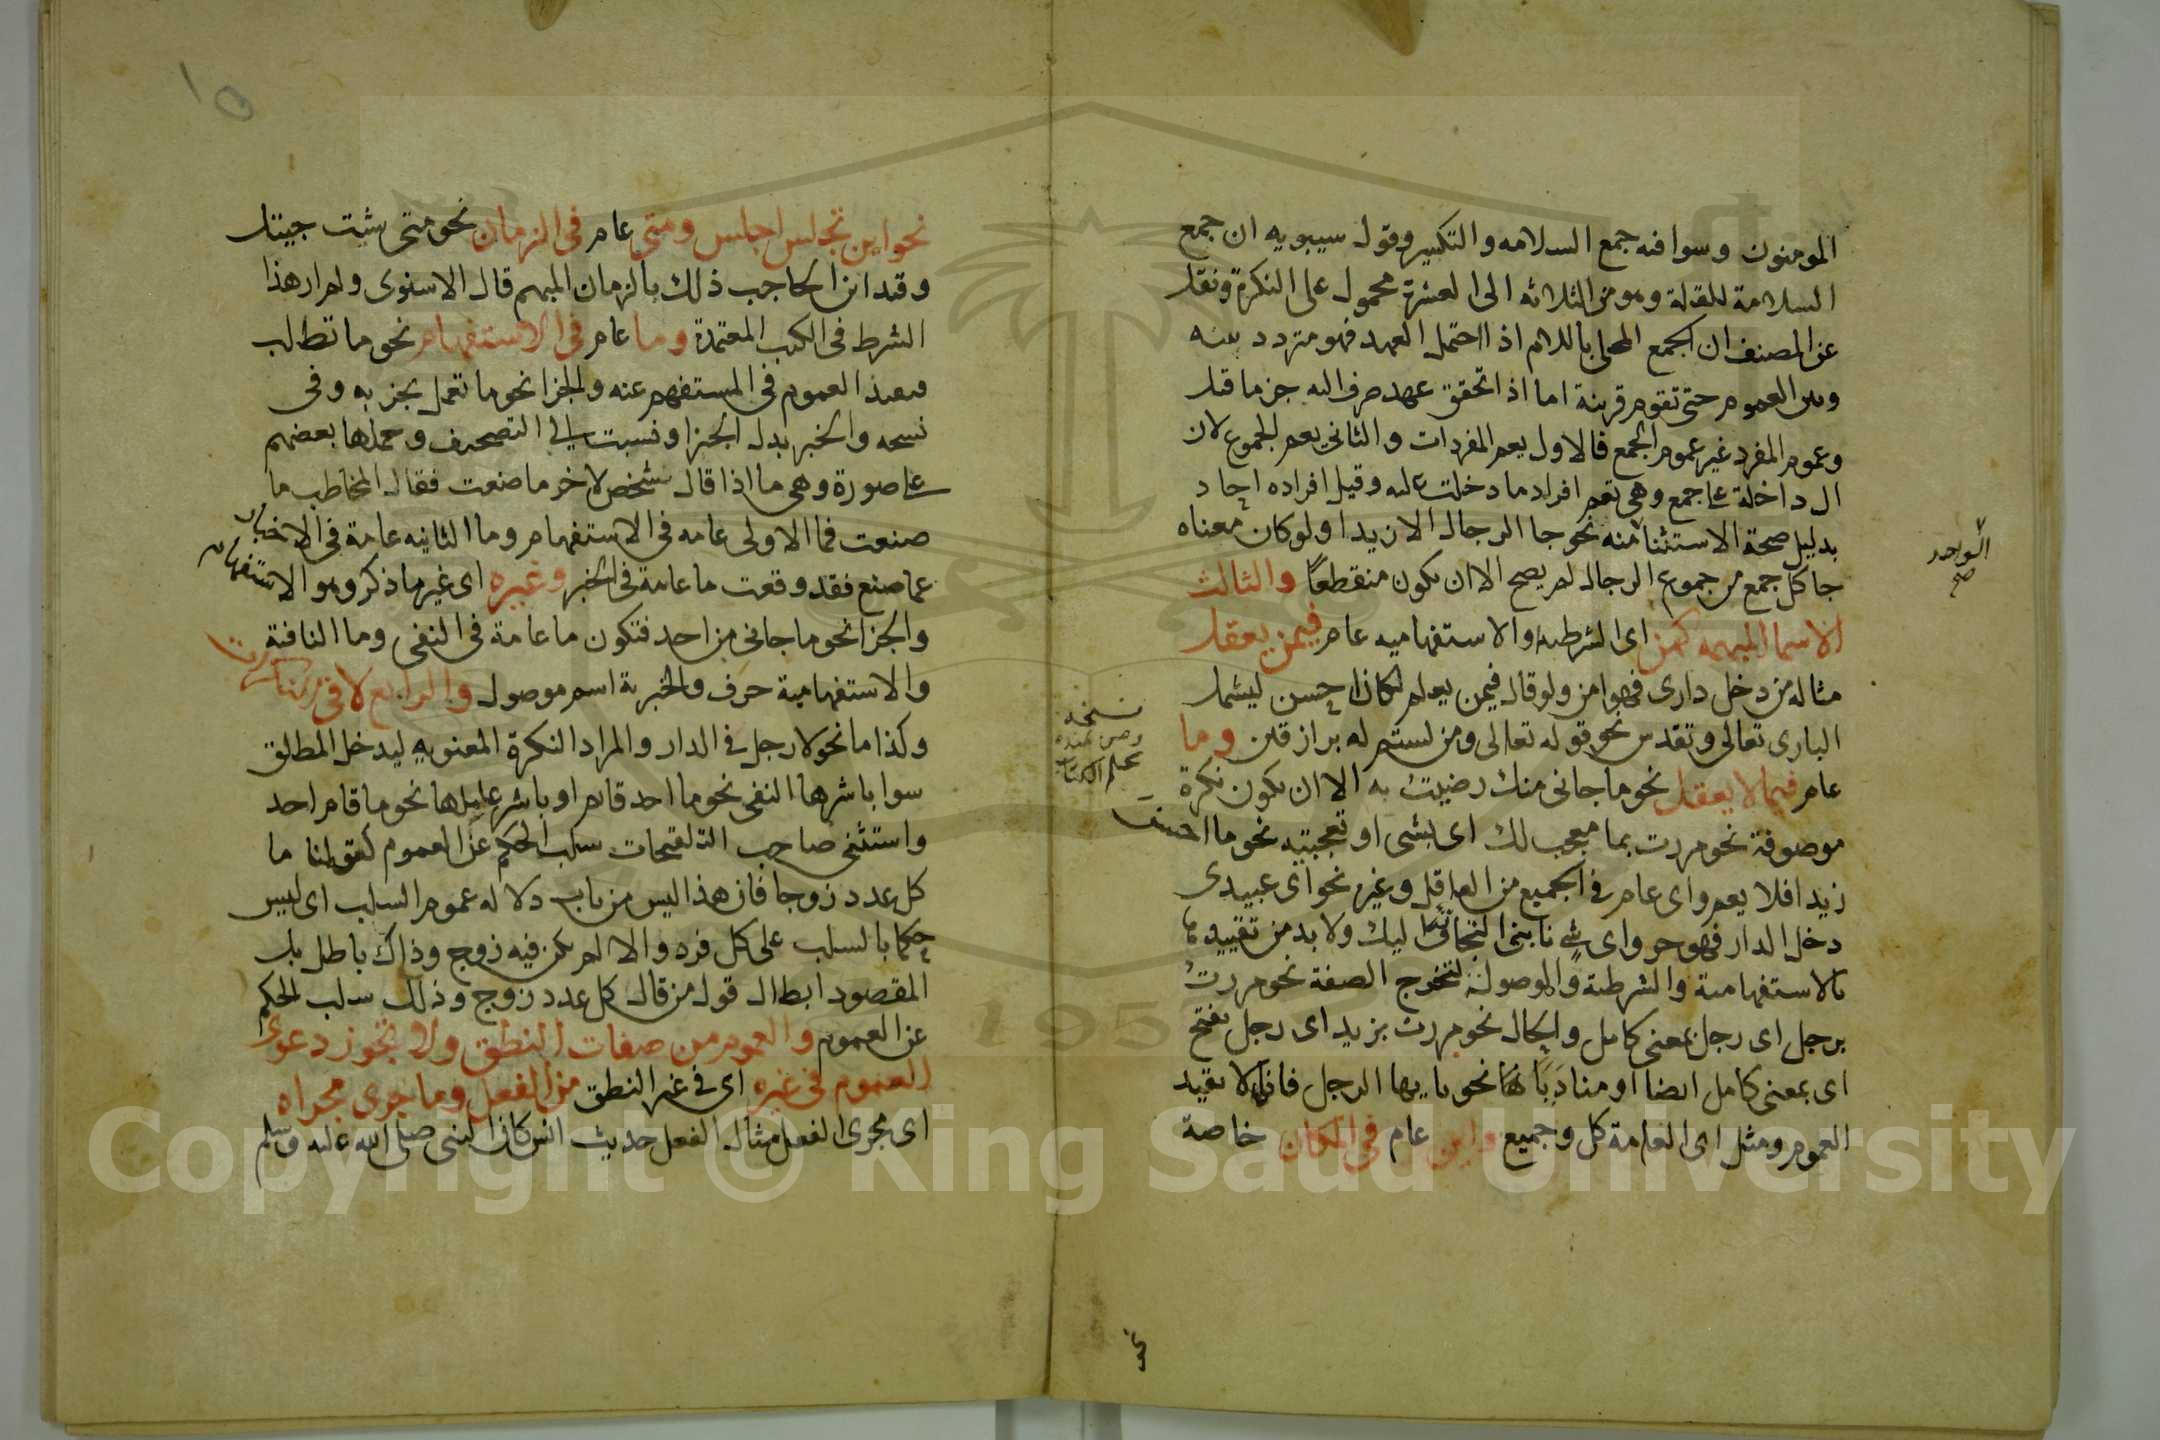 المومنون وسوا فيه جمع السلامه والتكسير وقول سيبويه ان جمع
السلامة للقلة وهو من الثلاثه الى العشرة محمول على النكرة ونقل
عن المصنف ان الجمع المحلى باللام اذا احتمل العهد فهو متردد بينه
وبين العموم حتى تقوم قرينة اما اذا تحقق عهد صرف اليه جزما قيل
وعموم المفرد غير عموم الجمع فالاول يعم المفردات والثاني يعم الجموع لان
ال داخلة على جمع وهي تعم افراد ما دخلت عليه وقيل افراده احاد
بدليل صحة الاستثنا منه نحو جا الرجال الا زيدا ولو كان معناه
الواحد
صح
جا كل جمع من جموع الرجال لم يصح الا ان يكون منقطعاً والثالث
الاسما المبهمه كمن اى الشرطيه والاستفهاميه عام فيمن يعقل
مثاله من دخل دارى فهو امن ولو قال فيمن يعلم لكان احسن ليشمل
البارى تعالى وتقدس نحو قوله تعالى ومن لستم له برازقين وما
عام فيما لا يعقل نحو ما جانى منك رضيت به الا ان يكون نكرة
موصوفة نحو مررت بما معجب لك اى بشى او تعجبيه نحو ما احسن
زيدا فلا يعم واى عام فى الجميع من العاقل وغيره نحو اى عبيدى
دخل الدار فهو حر واى شى نابنى التجات اليك ولا بد من تقييدها
بالاستفهامية والشرطية والموصولة لتخرج الصفة نحو مررت
برجل اى رجل بمعنى كامل والحال نحو مررت بزيد اى رجل بفتح
اى بمعنى كامل ايضا او منادَيًا بها نحو يايها الرجل فانها لا تفيد
العموم ومثل اى العامة كل وجميع واين عام فى المكان خاصة
نسخه
نحو اين تجلس اجلس ومتى عام فى الزمان نحو متى شيت جيتك
وقيد ابن الحاجب ذلك بالزمان المبهم قال الاسنوى ولم ار هذا
الشرط فى الكتب المعتمدة وما عام فى الاستفهام نحو ما تطلب
فيفيد العموم فى المستفهم عنه والجزا نحو ما تعمل تجز به وفى
نسحه والخبر بدل الجزا ونسبت الى التصحيف وحملها بعضهم
على صورة وهى ما اذا قال شخص لاخر ما صنعت فقال المخاطب ما
صنعت فما الاولى عامه فى الاستفهام وما الثانيه عامة فى الاخبار
عما صنع فقد وقعت ما عامة فى الخبر وغيره اى غير ما ذكر وهو الاستفهام
والجزا نحو ما جانى من احد فتكون ما عامة فى النفى وما النافية
والاستفهامية حرف والخبرية اسم موصول والرابع لا فى النكرات
وكذا ما نحو لا رجل فى الدار والمراد النكرة المعنويه ليدخل المطلق
سوا باشرها النفى نحو ما احد قام او باشر عاملها نحو ما قام احد
واستثنى صاحب التلقيحات سلب الحكم عن العموم كقولنا ما
كل عدد زوجا فان هذا ليس من باب دلاله عموم السلب اى ليس
حكما بالسلب على كل فرد والا لم يكن فيه زوج وذاك باطل بل
المقصود ابطال قول من قال كل عدد زوج وذلك سلب الحكم
عن العموم والعموم من صفات النطق ولا تجوز دعوى
العموم فى غيره اى فى غير النطق من الفعل وما جرى مجراه
اى مجرى الفعل مثال الفعل حديث انس كان النبى صلى الله عليه وسلم
Copyright © King Saud University